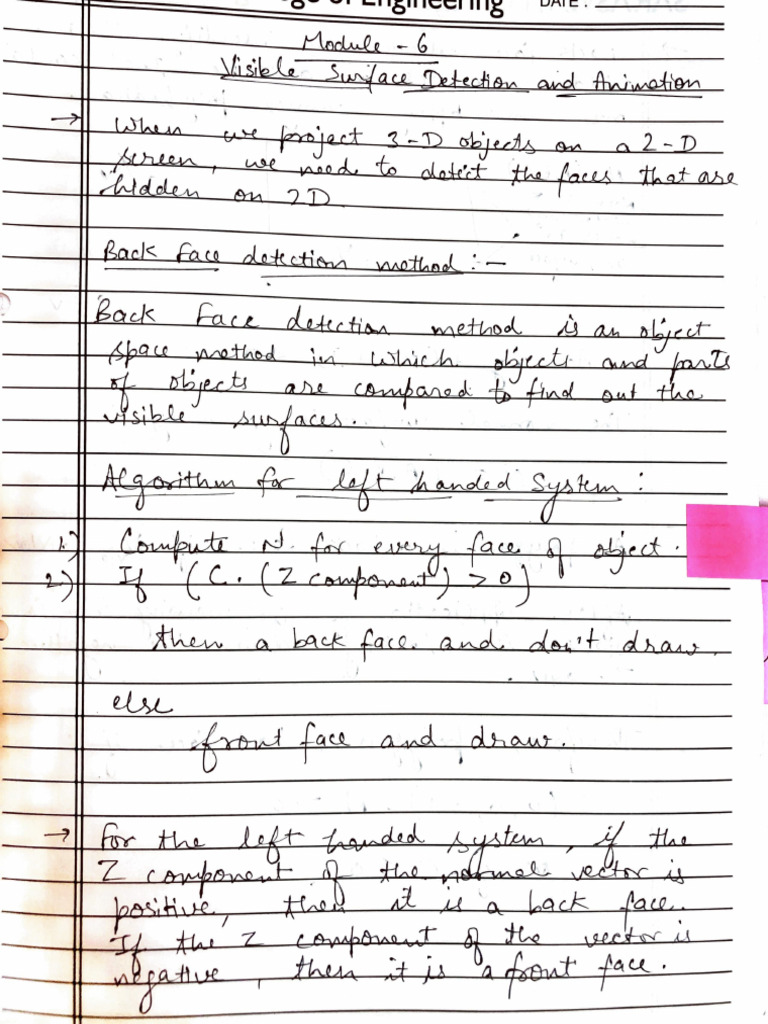 of Engineering DATE :
Module - 6
Visible Surface Detection and Animation
→ When we project 3-D objects on a 2-D
screen, we need to detect the faces that are
hidden on 2D.
Back face detection method :-
Back Face detection method is an object
space method in which objects and parts
of objects are compared to find out the
visible surfaces.
Algorithm for left handed System :
1.) Compute N for every face of object.
2.) If (C. (Z component) > 0)
then a back face and don't draw.
else
front face and draw.
→ For the left handed system, if the
Z component of the normal vector is
positive, then it is a back face.
If the Z component of the vector is
negative, then it is a front face.